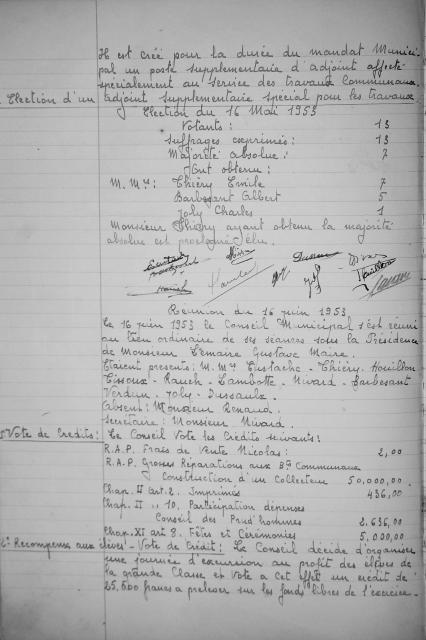 Il est créé pour la durée du mandat Munici-
pal un poste supplémentaire d'adjoint affecté
spécialement au service des travaux Communaux.
Election d'un adjoint supplémentaire spécial pour les travaux
Election du 16 Mai 1953
Votants : 13
Suffrages exprimés : 13
Majorité absolue : 7
Ont obtenu :
M. Mrs : Thiéry Emile 7
Barbesant Albert 5
Joly Charles 1
Monsieur Thiéry ayant obtenu la majorité
absolue est proclamé élu.
Réunion du 16 juin 1953
Le 16 juin 1953 le Conseil Municipal s'est réuni
au lieu ordinaire de ses séances sous la Présidence
de Monsieur Lemaire Gustave Maire.
Etaient présents : M. Mrs Eustache - Thiéry - Houillon
Rauch - Lambotte - Nivard - Barbesant
Verdun - Joly - Dussaulx.
Absent : Monsieur Renaud.
Secrétaire : Monsieur Nivard.
Vote de Crédits : Le Conseil Vote les Crédits suivants :
R.A.P. Frais de Vente Nicolas : 2,00
R.A.P. Grosses Réparations aux Bts Communaux
Construction d'un Collecteur 50,000,00
Chap. II art. 2. Imprimés 436,00
Chap. II " 10. Participation dépenses
Conseil des Prud'hommes 2.636,00
Chap. XI art 8. Fêtes et Cérémonies 5,000,00
2° Récompense aux élèves - Vote de Crédit : Le Conseil décide d'organiser
une journée d'excursion au profit des élèves de
la grande Classe et Vote à cet effet un crédit de
25,600 francs à prélever sur les fonds libres de l'exercice.